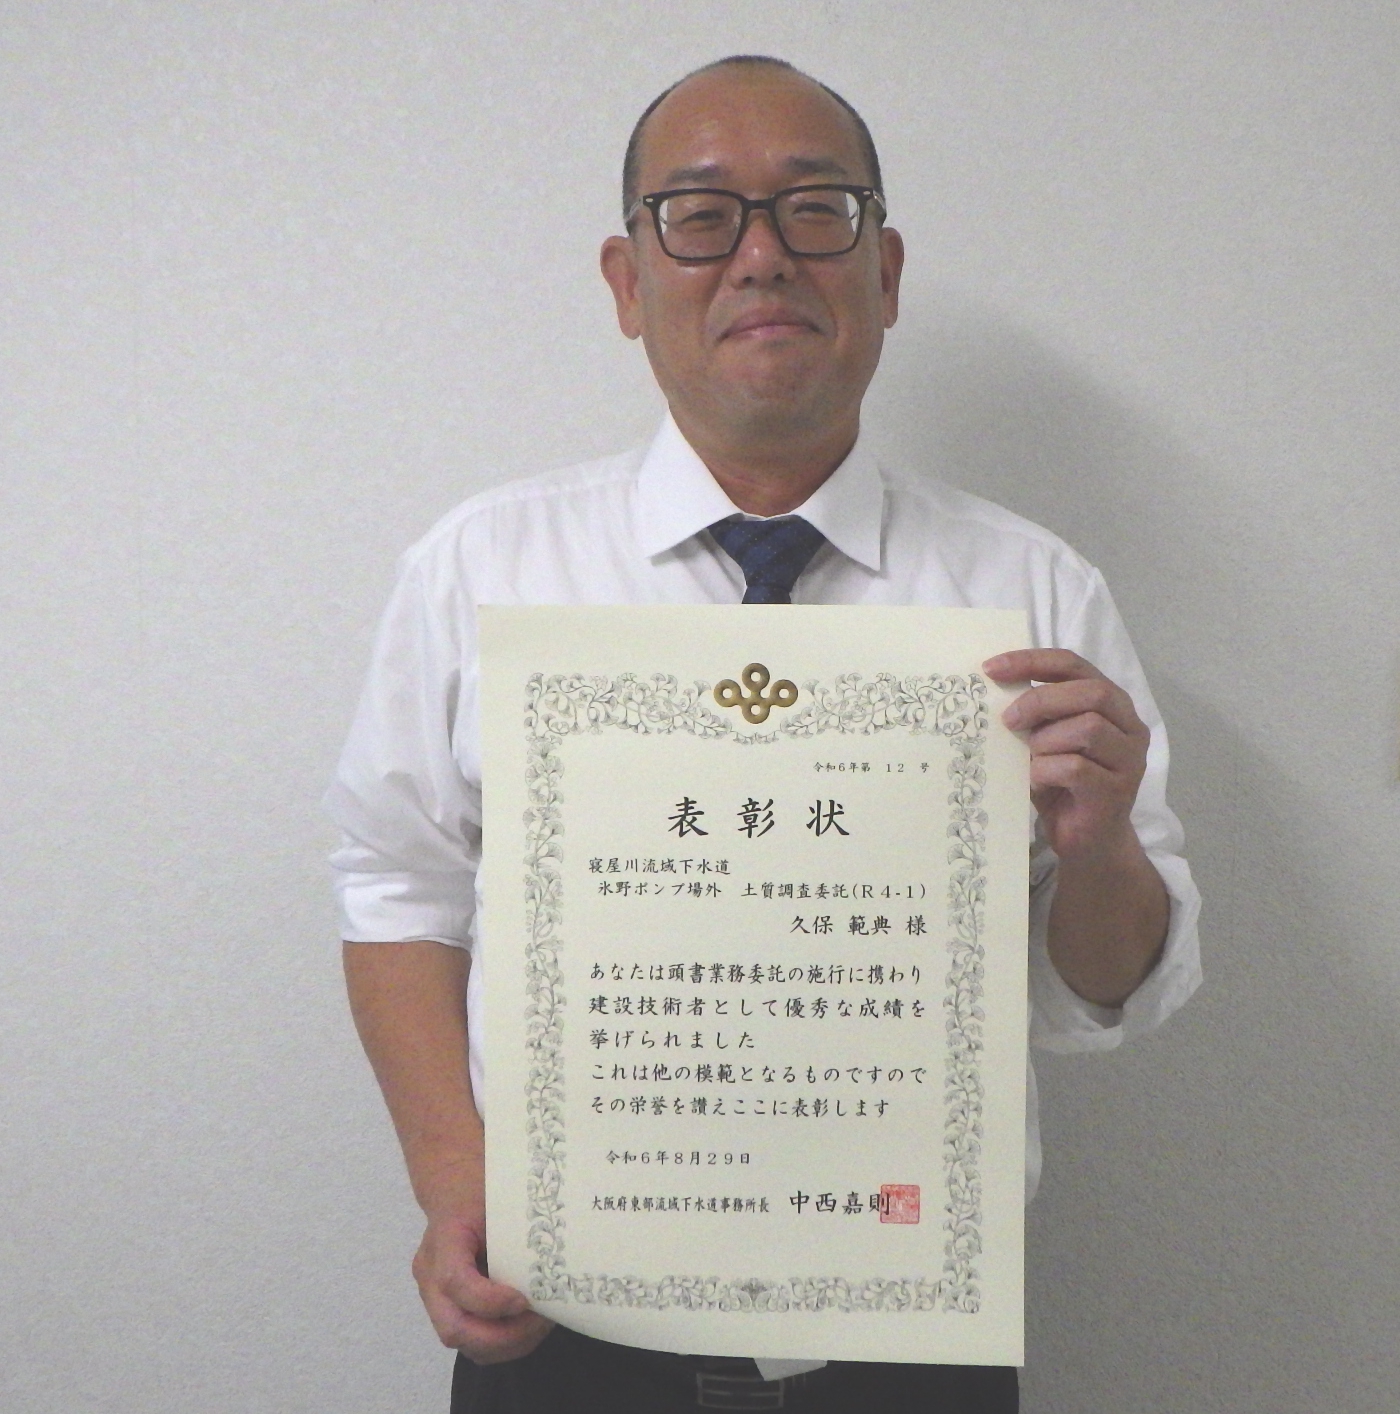 令和6年第　12　号
表彰状
寝屋川流域下水道
氷野ポンプ場外　土質調査委託(R4-1)
久保 範典 様
あなたは頭書業務委託の施行に携わり
建設技術者として優秀な成績を
挙げられました
これは他の模範となるものですので
その栄誉を讃えここに表彰します
令和6年8月29日
大阪府東部流域下水道事務所長　中西嘉則